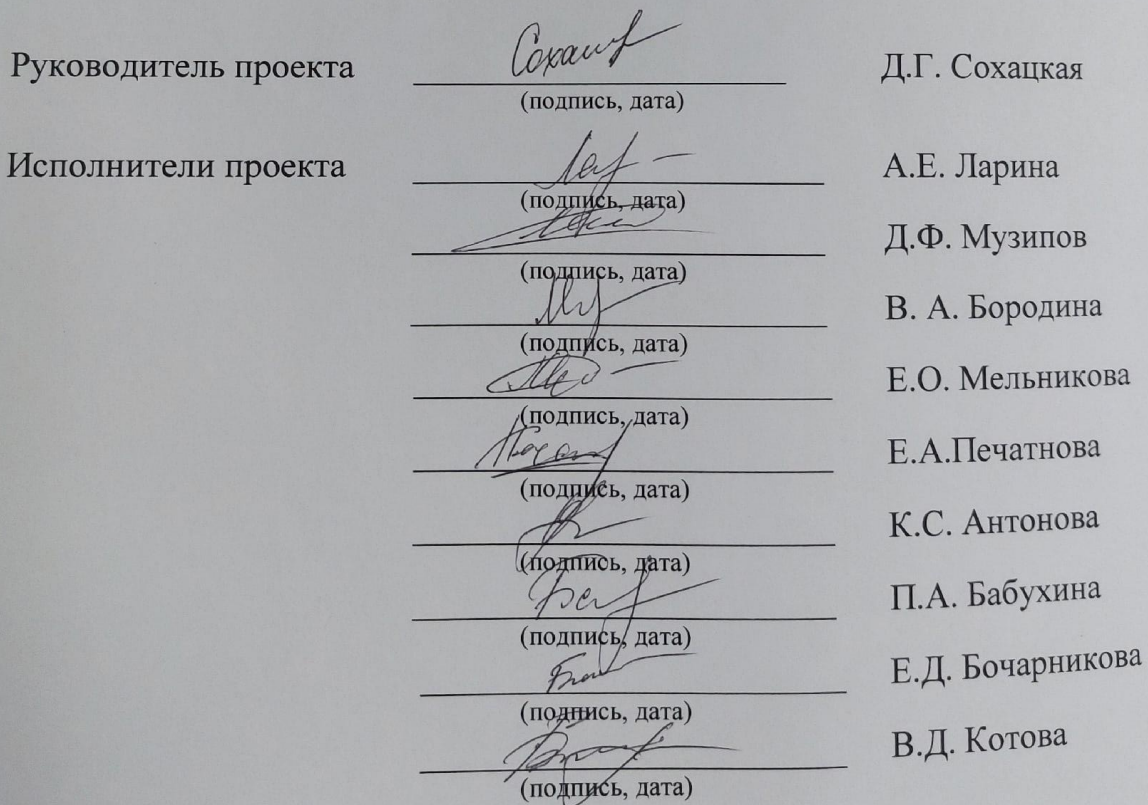 Руководитель проекта Д.Г. Сохацкая
(подпись, дата)
Исполнители проекта А.Е. Ларина
(подпись, дата)
Д.Ф. Музипов
(подпись, дата)
В. А. Бородина
(подпись, дата)
Е.О. Мельникова
(подпись, дата)
Е.А.Печатнова
(подпись, дата)
К.С. Антонова
(подпись, дата)
П.А. Бабухина
(подпись, дата)
Е.Д. Бочарникова
(подпись, дата)
В.Д. Котова
(подпись, дата)